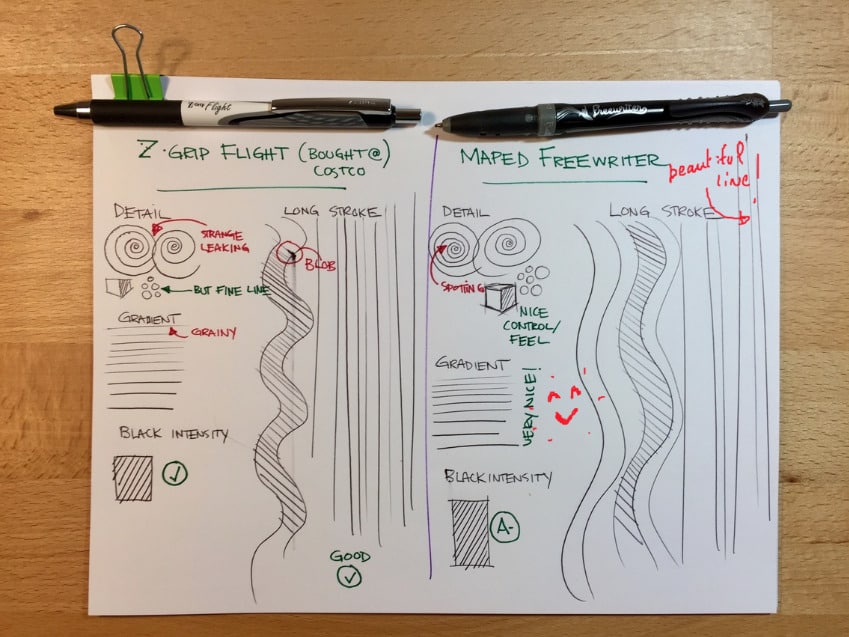 Flight
Freewriter
Z-GRIP FLIGHT (BOUGHT@)
COSTCO
DETAIL
LONG STROKE
STRANGE
LEAKING
BLOB
BUT FINE LINE
GRADIENT
GRAINY
BLACK INTENSITY
GOOD
MAPED FREEWRITER
beautiful
line!
DETAIL
LONG STROKE
SPOTING
NICE
CONTROL/
FEEL
GRADIENT
VERY NICE!
BLACK INTENSITY
A-